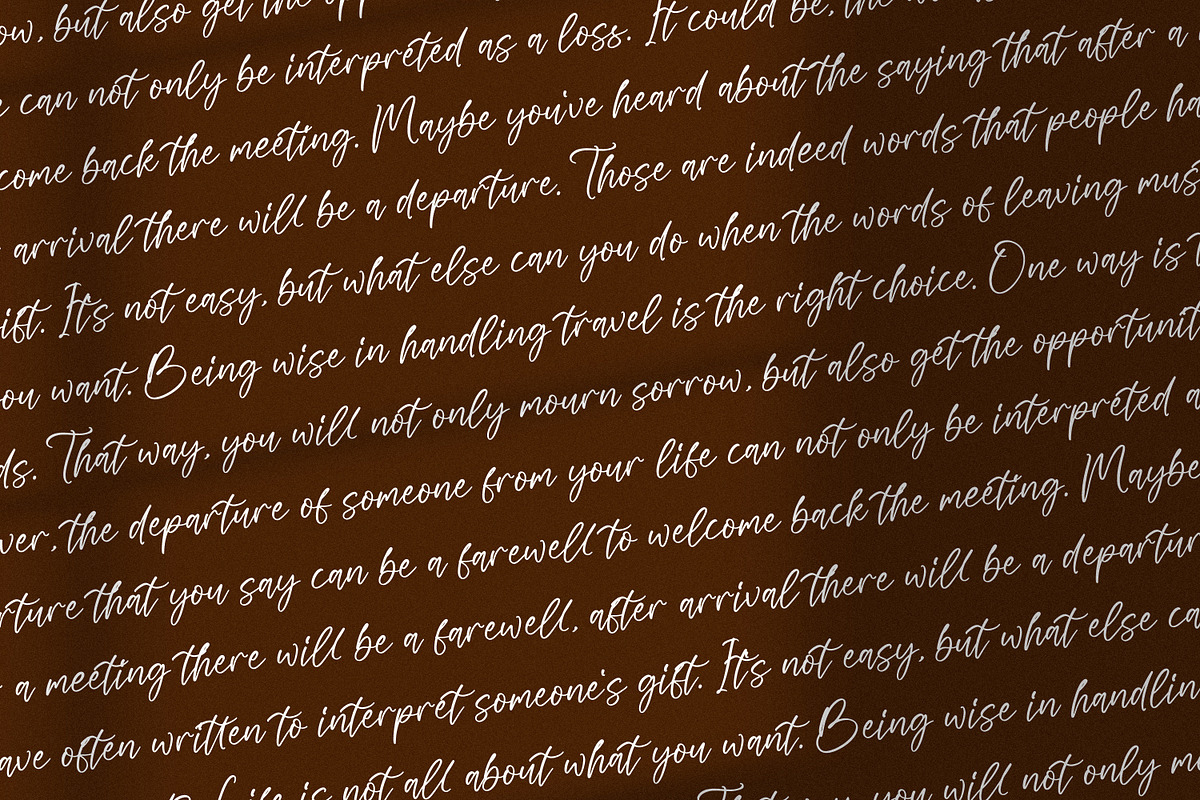 but also get the
can not only be interpreted as a loss. It could be, the
come back the meeting. Maybe you've heard about the saying that after a
arrival there will be a departure. Those are indeed words that people ha
ift. It's not easy, but what else can you do when the words of leaving mus
ou want. Being wise in handling travel is the right choice. One way is t
ds. That way, you will not only mourn sorrow, but also get the opportunit
ver, the departure of someone from your life can not only be interpreted a
rture that you say can be a farewell to welcome back the meeting. Maybe
a meeting there will be a farewell, after arrival there will be a departur
ave often written to interpret someone's gift. It's not easy, but what else ca
Life is not all about what you want. Being wise in handlin
That way, you will not only mo